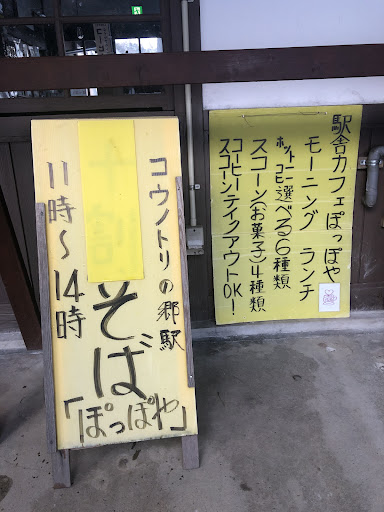 コウノトリの郷駅
そば
「ぽっぽや」
11時～14時
駅舎カフェぽっぽや
モーニング ランチ
ホットコーヒー選べる6種類
スコーン(お菓子)4種類
コーヒー
スコーンテイクアウトOK!